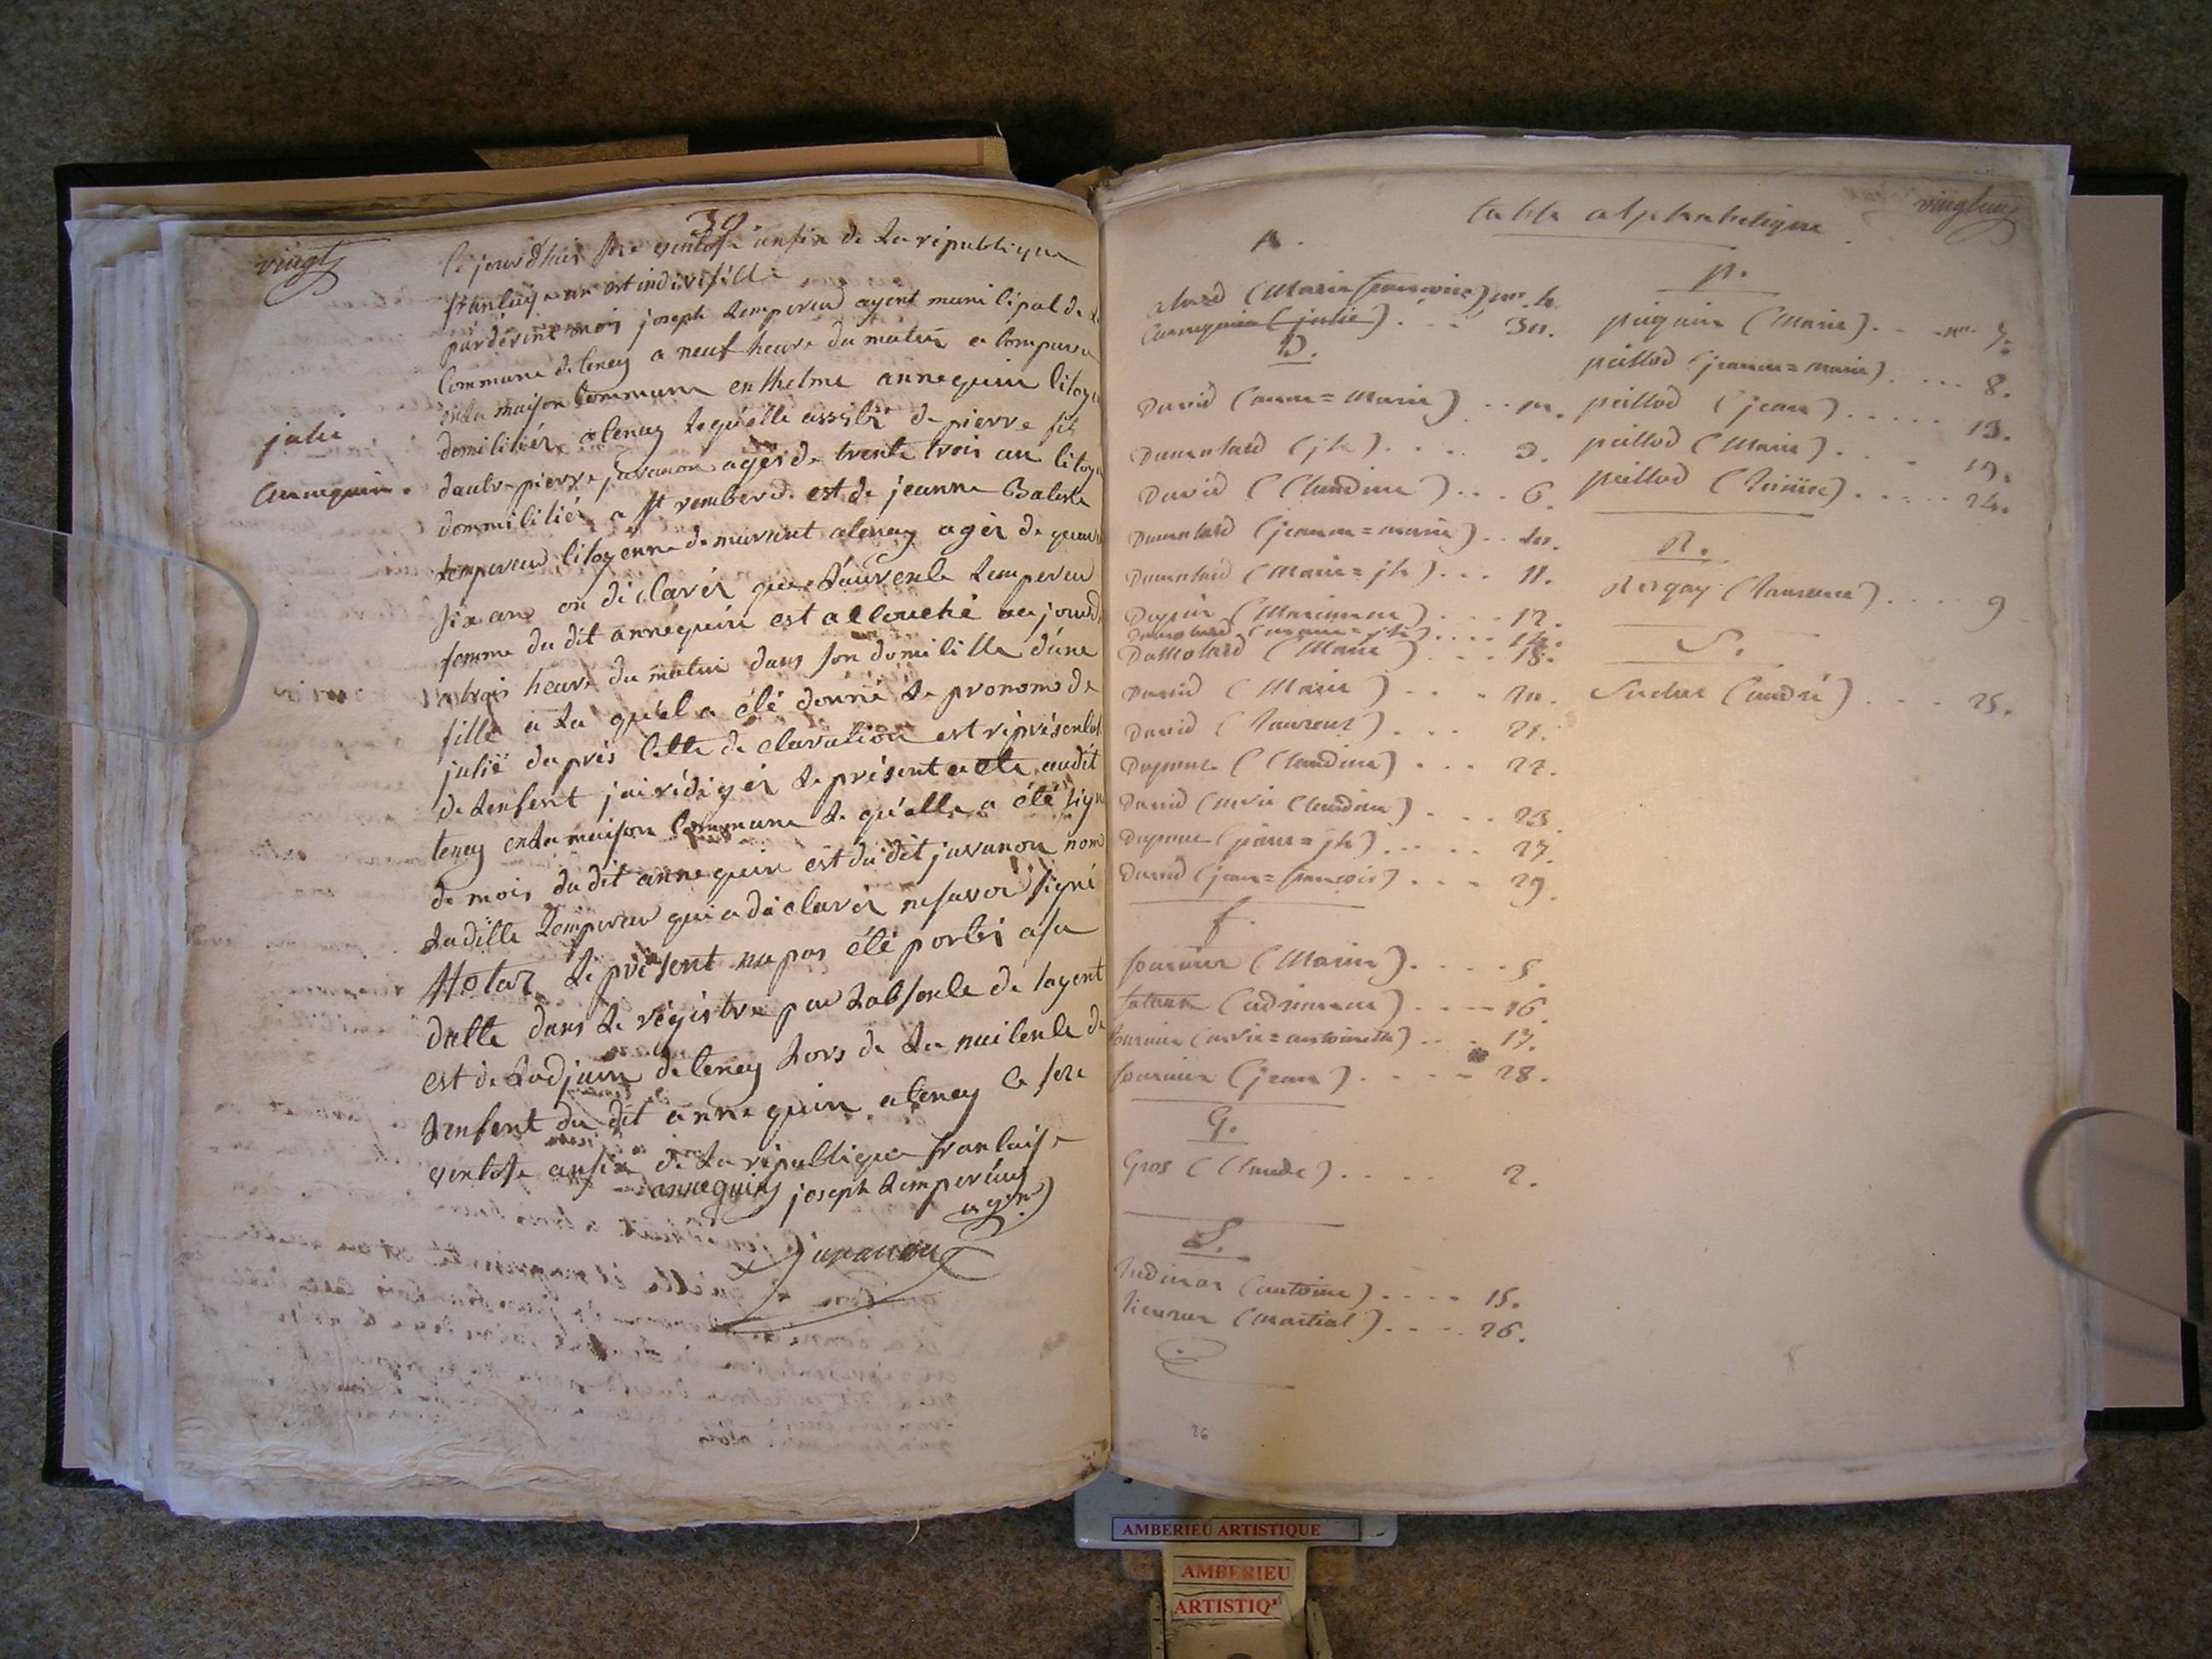 30
vingt
ce jourd'huis sere ventose ansix de la republique
franсaise un est indivisible
pardevint mois joseph Lempereur agent municipal de
Commune de teney a neuf heure du matin a comparu
en la maison Commune enthelme annequin citoye
domicilier a teney lequelle assisté de pierre fils
julie
annequin.
dautre pierre juvanon agér de trente trois an citoye
dommicilier a st remberd est de jeanne Batiste
Lempereur citoyenne demurant a teney agér de
six ans on déclarér que Laurence Lempereur
femme du dit annequin est accouché au jourd
a trois heure du matin dans son domicille d'une
fille a la quel a été donné le pronom de
julie daprés cette de claration est réprésentat
de Lenfent jai rédigér le présent acte audit
teney en la maison Commune le quelle a été sign
de mois du dit annequin est du dit juvanon non
Ladille Lempereur qui a dé clarér ne savoir signé
Nota. Le présent na pas été porter a sa
datte dans le régistre par Labsence de lagent
est de Ladjoin de teney Lors de la naisence de
Lenfent du dit annequin a teney ce sere
ventose ansix de la république francaise
annequin joseph Lempereur
agent
juvanon
table alphabetique
vingtun
A.
alard (Marie francoise) no. 4.
annequin (julie) . . . 30.
D.
David (anne = Marie) . .
Dumolard (jh) . . . . 3.
David (Claudine) . . . 6.
Dumolard (jeanne = marie) . . 10.
Dumolard (Marie = jh) . . . 11.
Dupin (Marianne) . . . 12.
Dumolard (marie = jh) . . . . 14.
Dumolard (Marie) . . . 18.
David (Marie) . . . 20.
David (Laurent) . . . 21.
Dupont (Claudine) . . . 22.
David (Marie Claudine) . . . 23.
Dupont (pierre = jh) . . . . . 27.
David (jean = francois) . . . 29.
f.
fournier (Marie) . . . . 5.
(adrienne) . . . . 16.
fournier (Marie = antoinette) . . . 17.
fournier (jean) . . . . . 28.
G.
Gros (Claude) . . . . 2.
L.
(antoine) . . . . 15.
(martial) . . . . 26.
p.
(Marie) . . . no. 7.
peillod (jeanne = marie) . . . . 8.
peillod (jean) . . . . . 13.
peillod (Marie) . . . . 19.
peillod . . . . . 24.
R.
(Laurence) . . . . 9
S.
(andré) . . . . 25.
86
AMBERIEU ARTISTIQUE
AMBERIEU
ARTISTIQ